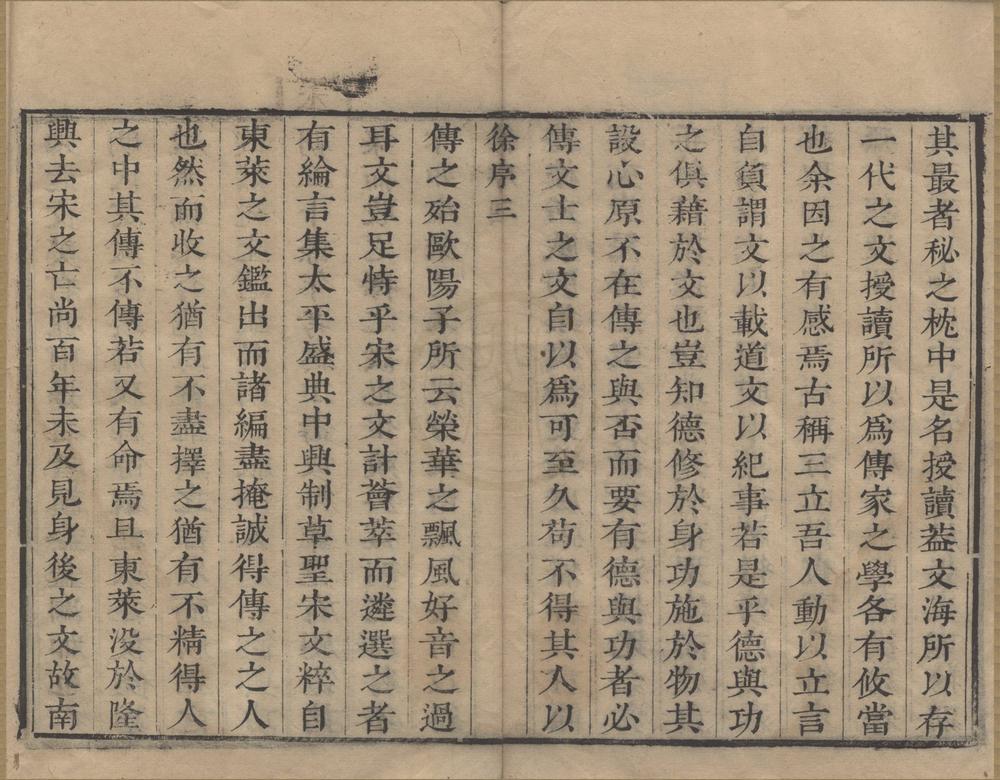 其最者秘之枕中是名授讀葢文海所以存
一代之文授讀所以爲傳家之學各有攸當
也余因之有感焉古稱三立吾人動以立言
自負謂文以載道文以紀事若是乎德與功
之俱藉於文也豈知德修於身功施於物其
設心原不在傳之與否而要有德與功者必
傳文士之文自以爲可至久苟不得其人以
徐序三
傳之殆歐陽子所云榮華之飄風好音之過
耳文豈足恃乎宋之文計薈萃而遴選之者
有綸言集太平盛典中興制草聖宋文粹自
東萊之文鑑出而諸編盡掩誠得傳之之人
也然而收之猶有不盡擇之猶有不精得人
之中其傳不傳若又有命焉且東萊没於隆
興去宋之亡尚百年未及見身後之文故南